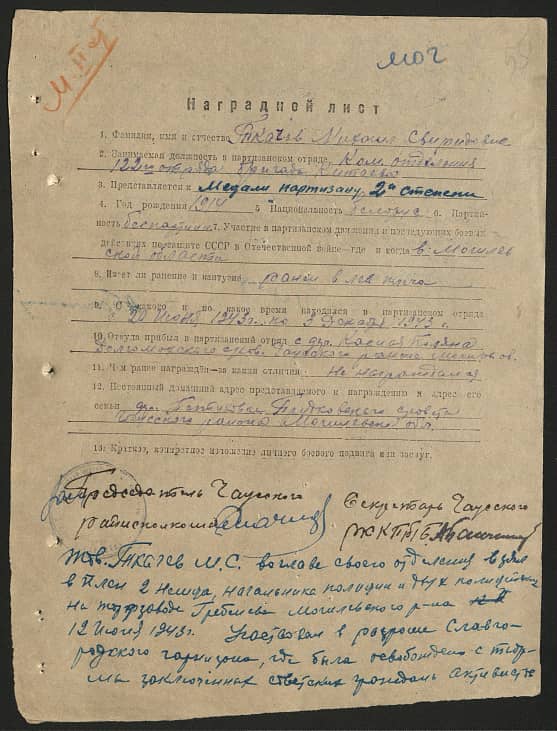 М.П.П.
мог
55
Наградной лист
1. Фамилия, имя и отчество Ткачев Михаил Свиридович
2. Занимаемая должность в партизанском отряде, Ком. отделения
122го отряда бригады
3. Представляется к Медали партизану 2й степени
4. Год рождения 1914 5 Национальность белорус 6. Партий-
ность беспартийн 7. Участие в партизанском движении и последующих боевых
действиях по защите СССР в Отечественной войне—где и когда в Могилев
ской области
8. Имеет ли ранение и контузию, ранен в лев
9. С какого и по какое время находился в партизанском отряде
с 20 Июня 1943г. по 3 декабря 1943 г.
10. Откуда прибыл в партизанский отряд с дер. Поляна
с/сов. Чаусского района
11. Чем ранее награжден—за какия отличия Не награждался
12. Постоянный домашний адрес представляемого к награждению и адрес его
семьи дер. совета
Чаусского района Могилевской обл.
13. Краткое, конкретное изложение личного боевого подвига или заслуг.
Председатель Чаусского
райисполкома
Секретарь Чаусского
РК КП(б)Б
Тов. Ткачев М.С. во главе своего отделения взял
в плен 2 немца, начальника полиции и двух полицейских
на Могилевского р-на
12 Июня 1943г. Участвовал в разгроме Славго-
родского гарнизона, где была освобождена с тюрь-
мы заключенных советских граждан активисте